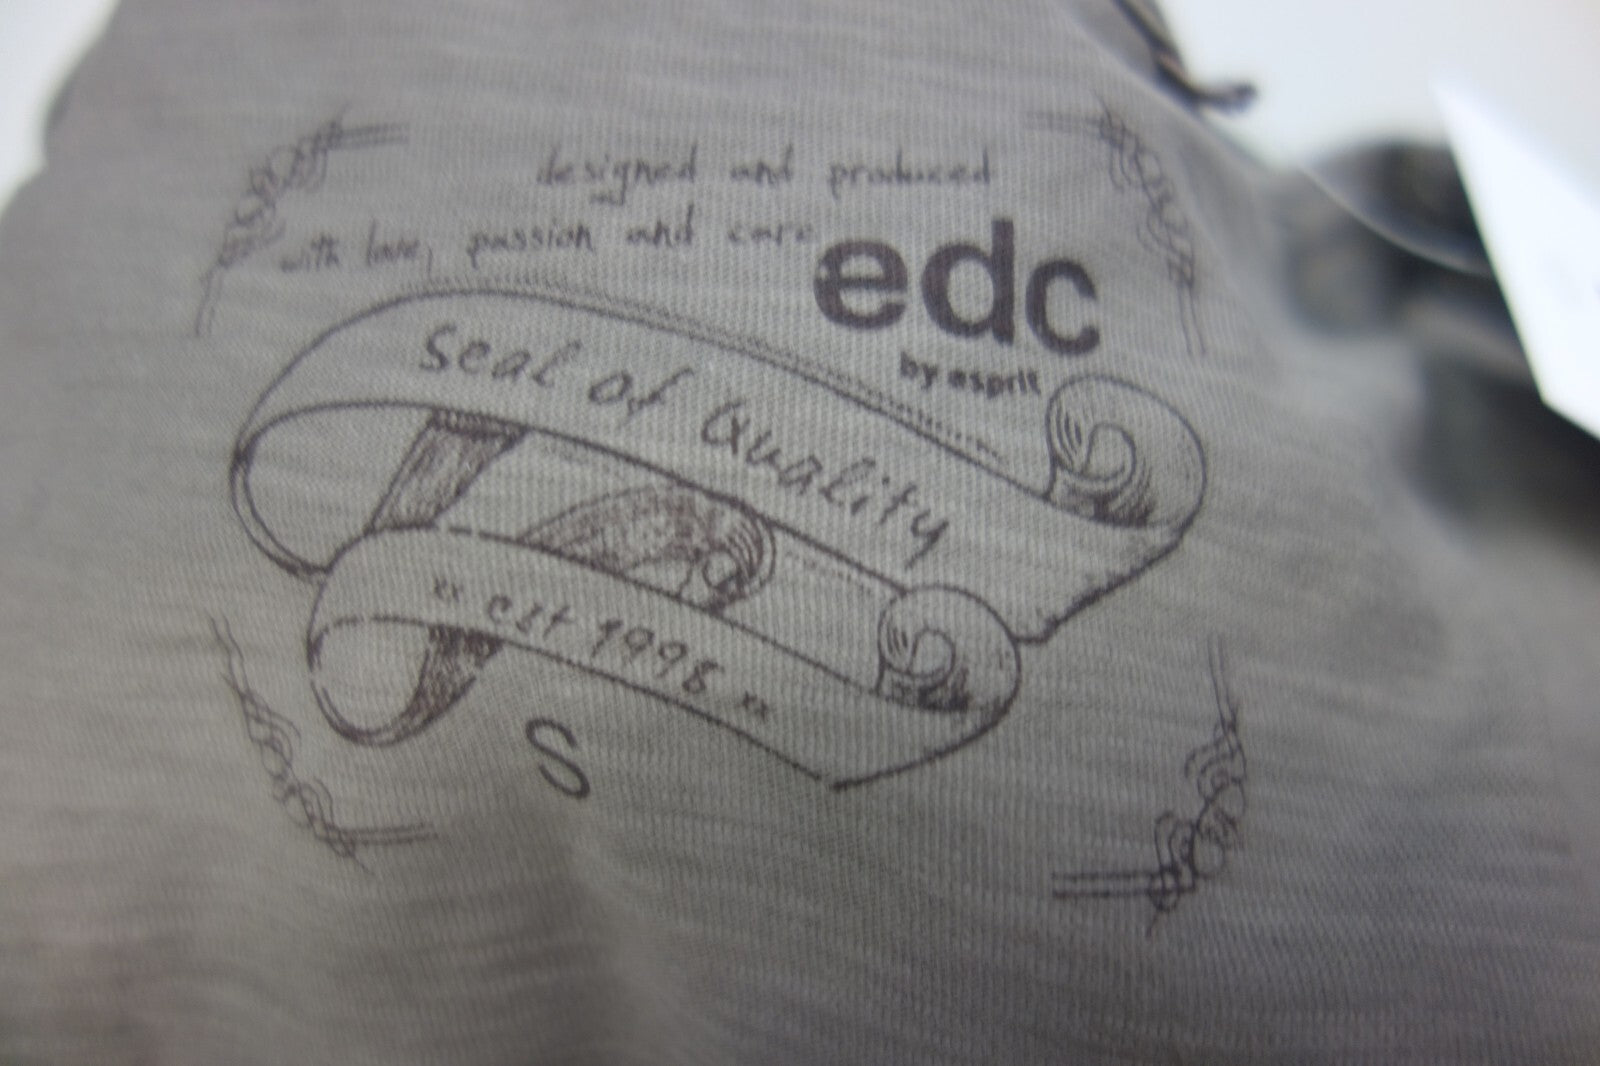 designed and produced
with love, passion and care
edc
by esprit
seal of Quality
" est 1998 "
S